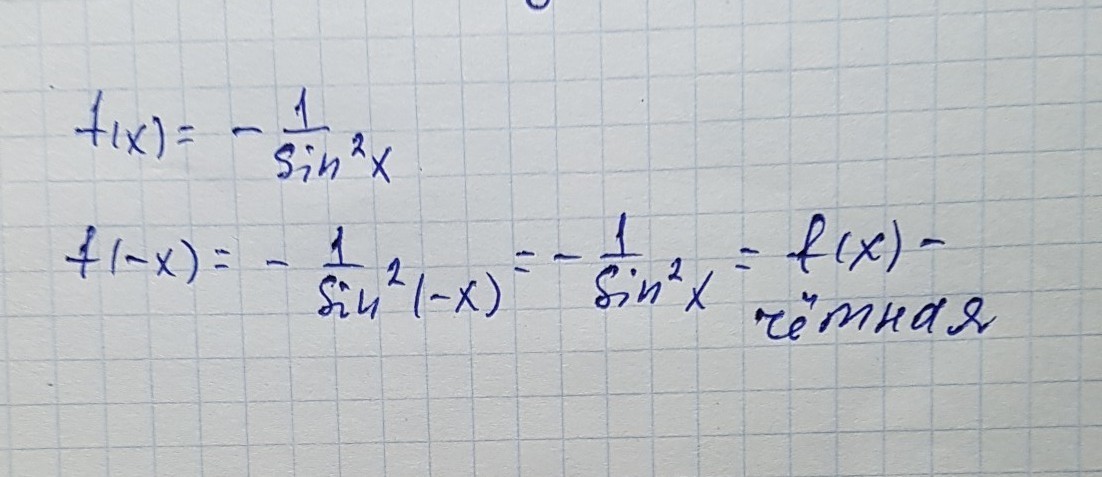 f(x) = - 1/sin²x
f(-x) = - 1/sin²(-x) = - 1/sin²x = f(x) -
чётная